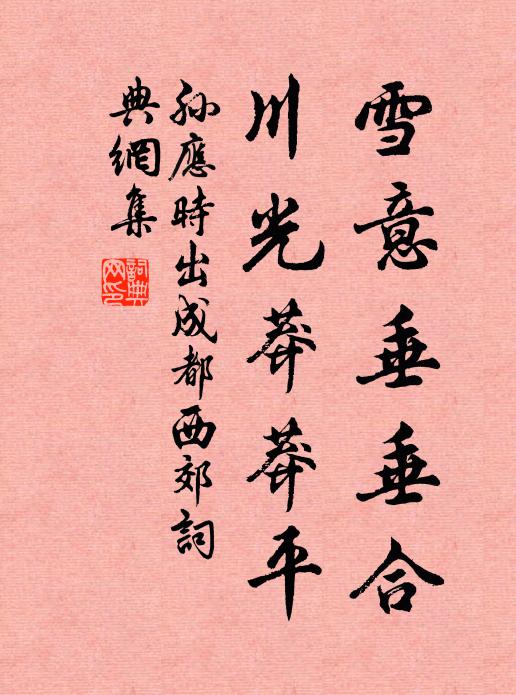 雪意垂垂合
川光莽莽平
孫應時出成都西郊詞
典網集
詞典網印